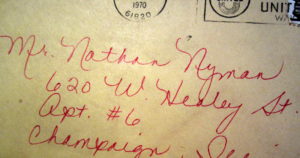 1970
61820
UNIT
Mr. Nathan Nyman
620 W. Healey St.
Apt. #6
Champaign,